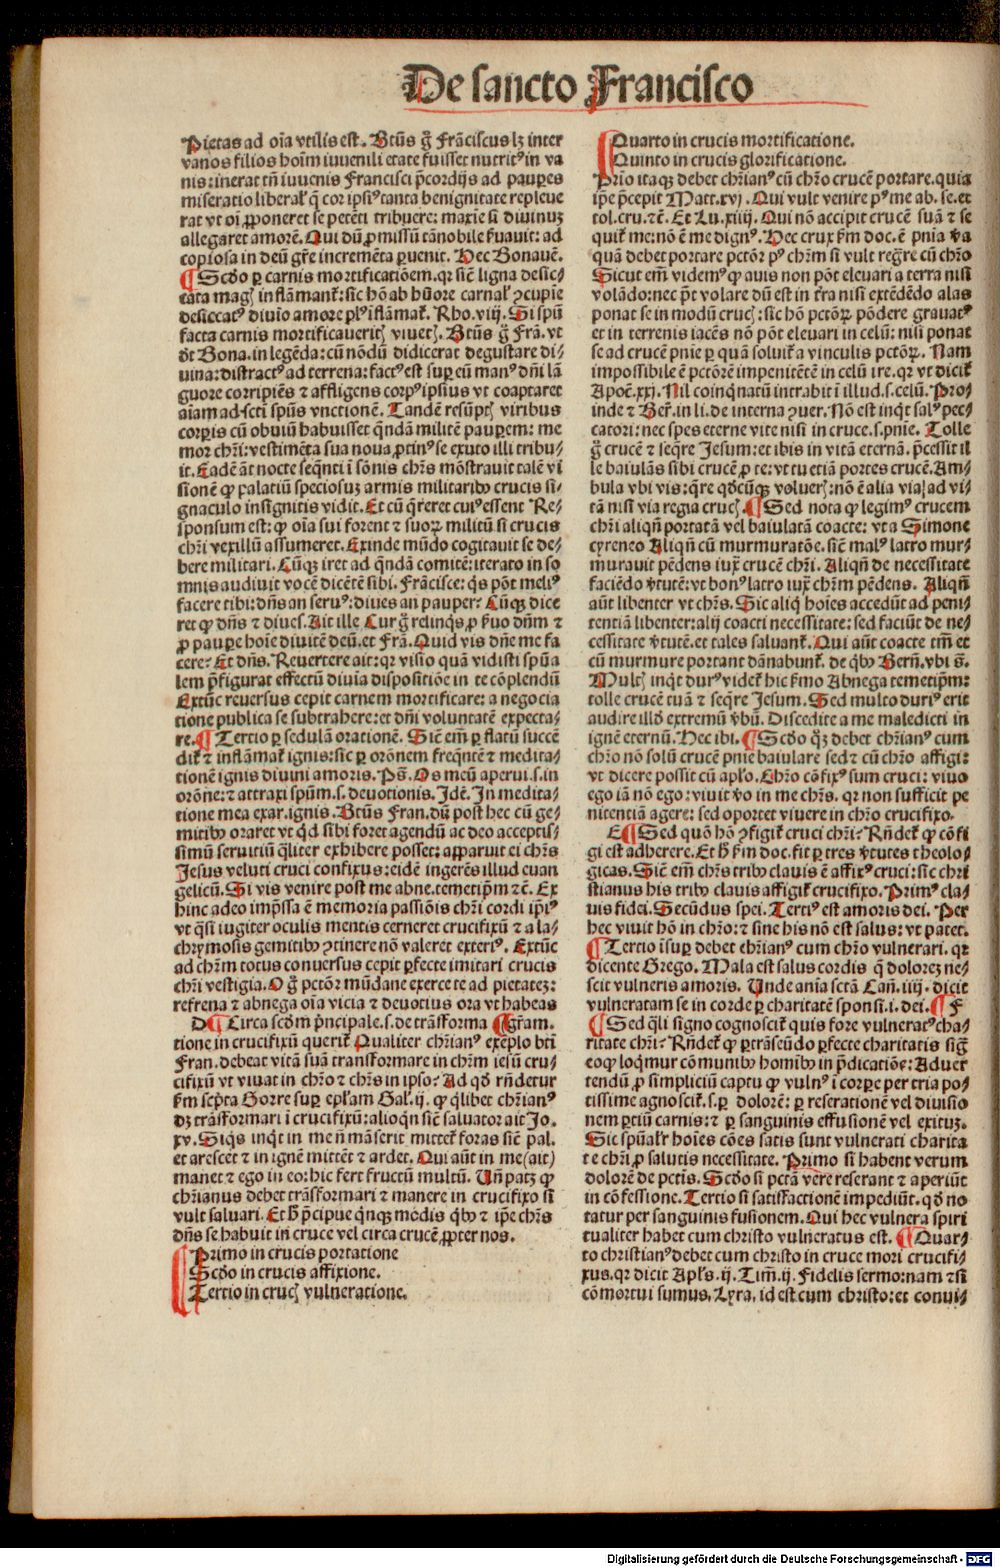 De sancto Francisco
Pietas ad oīa vtilis est. Btūs g̃ Frāciscus lꝫ inter
vanos filios hoīm iuuenili etate fuisset nutritꝰ in va
nis: inerat tn̄ iuuenis Francisci p̄cordijs ad pauꝑes
miseratio liberaľ q̄ cor ipsiꝰ tanta benignitate repleue
rat vt oī ꝓponeret se petēti tribuere: maxīe si diuinuꝫ
allegaret amorē. Qui dū ꝓmissū tā nobile ẜuauit: ad
copiosa in deū gr̄e incremēta ꝑuenit. Hec Bonauē.
¶ Scd̄o ꝑ carnis mortificatiōem. qꝛ siē ligna desic⸗
cata magꝭ inflāmant̄: sic hō ab hūore carnaľ ꝯcupīe
desiccatꝰ diuīo amore plꝰ īflāmat̄. Rho. viij. Si spū
facta carnis mortificaueritꝭ viuetꝭ. Btūs g̃ Frā. vt
d̄t Bona. in legēda: cū nōdū didicerat degustare di⸗
uina: distractꝰ ad terrena: factꝰ est suꝑ eū manꝰ dn̄i lā
guore corripiēs ⁊ affligens corpꝰ ipsius vt coaptaret
aīam ad sct̄i spūs vnctionē. Tandē resūptꝭ viribus
corꝑis cū obuiū habuisset qn̄dā militē pauꝑem: me
mor chr̄i: vestimēta sua noua ꝓtinꝰ se exuto illi tribu⸗
it. Eadē āt nocte seqn̄ti ī sōnis chr̄s mōstrauit talē vi
sionē ꝙ palatiū speciosuꝫ armis militaribꝰ crucis si⸗
gnaculo insignitis vidit. Et cū q̄reret cuiꝰ essent Re⸗
sponsum est: ꝙ oīa sui forent ⁊ suoꝝ militū si crucis
chr̄i vexillū assumeret. Exinde mūdo cogitauit se de⸗
bere militari. Cūqꝫ iret ad qn̄dā comitē: iterato in so
mnis audiuit vocē dicētē sibi. Frācisce: q̄s pōt meliꝰ
facere tibi: dn̄s an seruꝰ: diues an pauper? Cūqꝫ dice
ret ꝙ dn̄s ⁊ diues. Ait ille Cur g̃ relinq̄s ꝓ ẜuo dn̄m ⁊
ꝓ pauꝑe hoīe diuitē deū. et Frā. Quid vis dn̄e me fa
cere? Et dn̄s. Reuertere ait: qꝛ visio quā vidisti spūa
lem p̄figurat effectū diuīa dispositiōe in te cōplendū
Extūc reuersus cepit carnem mortificare: a negocia
tione publica se subtrahere: et dn̄i voluntatē expecta⸗
re. ¶ Tertio ꝑ sedulā orationē. Siē em̄ ꝑ flatū succē
dit̄ ⁊ inflāmat̄ ignis: sic ꝑ orōnem freq̄ntē ⁊ medita⸗
tionē ignis diuini amoris. Pꝰ. Os meū aperui .s. in
orōne: ⁊ attraxi spūm .s. deuotionis. Idē. In medita⸗
tione mea exar. ignis. Btūs Fran. dū post hec cū ge⸗
mitibꝰ oraret vt qd̄ sibi foret agendū ac deo acceptis⸗
simū seruitiū q̄liter exhibere posset: apparuit ei chr̄s
Jesus veluti cruci confixus: eidē ingerēs illud euan
gelicū. Si vis venire post me abne. temetip̄m ⁊c̄. Ex
hinc adeo imp̄ssa ē memoria passiōis chr̄i cordi ip̄iꝰ
vt q̄si iugiter oculis mentis cerneret crucifixū ⁊ a la⸗
chrymosis gemitibꝰ ꝯtinere nō valeret exteriꝰ. Extūc
ad chr̄m totus conuersus cepit ꝑfecte imitari crucis
chr̄i vestigia. O g̃ pctōr mūdane exerce te ad pietateꝫ:
refrena ⁊ abnega oīa vicia ⁊ deuotius ora vt habeas
D ¶ Circa scd̄m p̄ncipale .s. de trāsforma ¶ gr̄am.
tione in crucifixū querit̄ Qualiter chr̄ianꝰ exēplo bt̄i
Fran. debeat vitā suā transformare in chr̄m iesū cru⸗
cifixū vt viuat in chr̄o ⁊ chr̄s in ipso? Ad qd̄ rn̄detur
ẜm scp̄ta Gorre suꝑ epl̄am Gal̄. ij. ꝙ q̄libet chr̄ianꝰ
dꝫ trāsformari ī crucifixū: alioqn̄ siē saluator ait Jo.
xv. Siq̄s inq̄t in me n̄ māserit mittet̄ foras siē pal.
et arescet ⁊ in ignē mittēt ⁊ ardet. Qui aūt in me (ait)
manet ⁊ ego in eo: hic fert fructū multū. Un̄ patꝫ ꝙ
chr̄ianus debet trāsformari ⁊ manere in crucifixo si
vult saluari. Et h̄ p̄cipue q̄nqꝫ modis q̄bꝰ ⁊ ip̄e chr̄s
dn̄s se habuit in cruce vel circa crucē ꝓpter nos.
Primo in crucis portatione
Scd̄o in crucis affixione.
Tertio in crucꝭ vulneratione.
Quarto in crucis mortificatione.
Quinto in crucis glorificatione.
Prīo itaqꝫ debet chr̄ianꝰ cū chr̄o crucē portare. quia
ip̄e p̄cepit Matt. xvj. Qui vult venire pꝰ me ab. se. et
tol. cru. ⁊c̄. Et Lu. xiiij. Qui nō accipit crucē suā ⁊ se
quit̄ me: nō ē me dignꝰ. Hec crux ẜm doc. ē pn̄ia ꝟa
quā debet portare pctōr pꝰ chr̄m si vult regr̄e cū chr̄o
Sicut em̄ videmꝰ ꝙ auis non pōt eleuari a terra nisi
volādo: nec p̄t volare dū est in t̄ra nisi extēdēdo alas
ponat se in modū crucꝭ: sic hō pctōꝝ pōdere grauatꝰ
et in terrenis iacēs nō pōt eleuari in celū: nisi ponat
se ad crucē pnīe ꝑ quā soluit̄ a vinculis pctōꝝ. Nam
impossibile ē pctōrē impenitētē in celū ire. qꝛ vt dicit̄
Apoc̄. xxj. Nil coinq̄natū intrabit ī illud .s. celū. Pro⸗
inde ⁊ Ber̄. in li. de interna ꝯuer. Nō est inq̄t salꝰ pec⸗
catori: nec spes eterne vite nisi in cruce .s. pnīe. Tolle
g̃ crucē ⁊ seq̄re Jesum: et ibis in vitā eternā. p̄cessit il
le baiulās sibi crucē ꝓ te: vt tu etiā portes crucē. Am⸗
bula vbi vis: q̄re qd̄cūqꝫ volueꝭ: nō ē alia via ad vi⸗
tā nisi via regia crucꝭ. ¶ Sed nota ꝙ legimꝰ crucem
chr̄i aliqn̄ portatā vel baiulatā coacte: vt a Simone
cyreneo Aliqn̄ cū murmuratōe. siē malꝰ latro mur⸗
murauit pēdens iuꝟ crucē chr̄i. Aliqn̄ de necessitate
faciēdo ꝟtutē: vt bonꝰ latro iux̄ chr̄m pēdens. Aliqn̄
aūt libenter vt chr̄s. Sic aliq̄ hoīes accedūt ad peni⸗
tentiā libenter: alij coacti necessitate: sed faciūt de ne⸗
cessitate ꝟtutē. et tales saluant̄. Qui aūt coacte tm̄ et
cū murmure portant dānabunt̄. de q̄bꝰ Bern̄. vbi s̄.
Multꝭ inq̄t durꝰ videt̄ hic ẜmo Abnega temetip̄m:
tolle crucē tuā ⁊ seq̄re Jesum. Sed multo duriꝰ erit
audire illd̄ extremū ꝟbū. Discedite a me maledicti in
ignē eternū. Hec ibi. ¶ Scd̄o q̄ꝫ debet chr̄ianꝰ cum
chr̄o nō solū crucē pnīe baiulare sed ⁊ cū chr̄o affigi:
vt dicere possit cū apl̄o. Chr̄o cōfixꝰ sum cruci: viuo
ego iā nō ego: viuit ꝟo in me chr̄s. qꝛ non sufficit pe
nitentiā agere: sed oportet viuere in chr̄o crucifixo.
E ¶ Sed quō hō ꝯfigit̄ cruci chr̄i? Rn̄det̄ ꝙ cōfi
gi est adherere. Et h̄ ẜm doc. fit ꝑ tres ꝟtutes theolo⸗
gicas. Siē em̄ chr̄s tribꝰ clauis ē affixꝰ cruci: sic chri
stianus his tribꝰ clauis affigit̄ crucifixo. Primꝰ cla⸗
uis fidei. Secūdus spei. Tertiꝰ est amoris dei. Per
hec viuit hō in chr̄o: ⁊ sine his nō est salus: vt patet.
¶ Tertio īsuꝑ debet chr̄ianꝰ cum chr̄o vulnerari. qꝛ
dicente Grego. Mala est salus cordis q̄ dolorez ne⸗
scit vulneris amoris. Unde anīa sctā Can̄. iiij. dicit
vulneratam se in corde ꝑ charitatē sponsi .i. dei. ¶ F
¶ Sed q̄li signo cognoscit̄ quis fore vulneratꝰ cha⸗
ritate chr̄i? Rn̄det̄ ꝙ ꝑtrāseūdo ꝑfecte charitatis sig̃
eoꝙ loq̄mur cōmunibꝰ hominibꝰ in p̄dicatiōe: Aduer
tendū ꝓ simpliciū captu ꝙ vulnꝰ ī corꝑe per tria po⸗
tissime agnoscit̄ .s. ꝑ dolorē: ꝑ reserationē vel diuisio
nem ꝑtiū carnis: ⁊ ꝑ sanguinis effusionē vel exituꝫ.
Sic spūal̄r hoīes cōes satis sunt vulnerati charita
te chr̄i ꝓ salutis necessitate. Primo si habent verum
dolorē de pctis. Scd̄o si pctā vere reserant ⁊ aperiūt
in cōfessione. Tertio si satisfactionē impediūt. qd̄ no
tatur per sanguinis fusionem. Qui hec vulnera spiri
tualiter habet cum christo vulneratus est. ¶ Quar⸗
to christianꝰ debet cum christo in cruce mori crucifi⸗
xus. qꝛ dicit Apl̄s. ij. Tim̄. ij. Fidelis sermo: nam ⁊ si
cōmortui sumus. Lyra. id est cum christo: et conui⸗
Digitalisierung gefördert durch die Deutsche Forschungsgemeinschaft - DFG